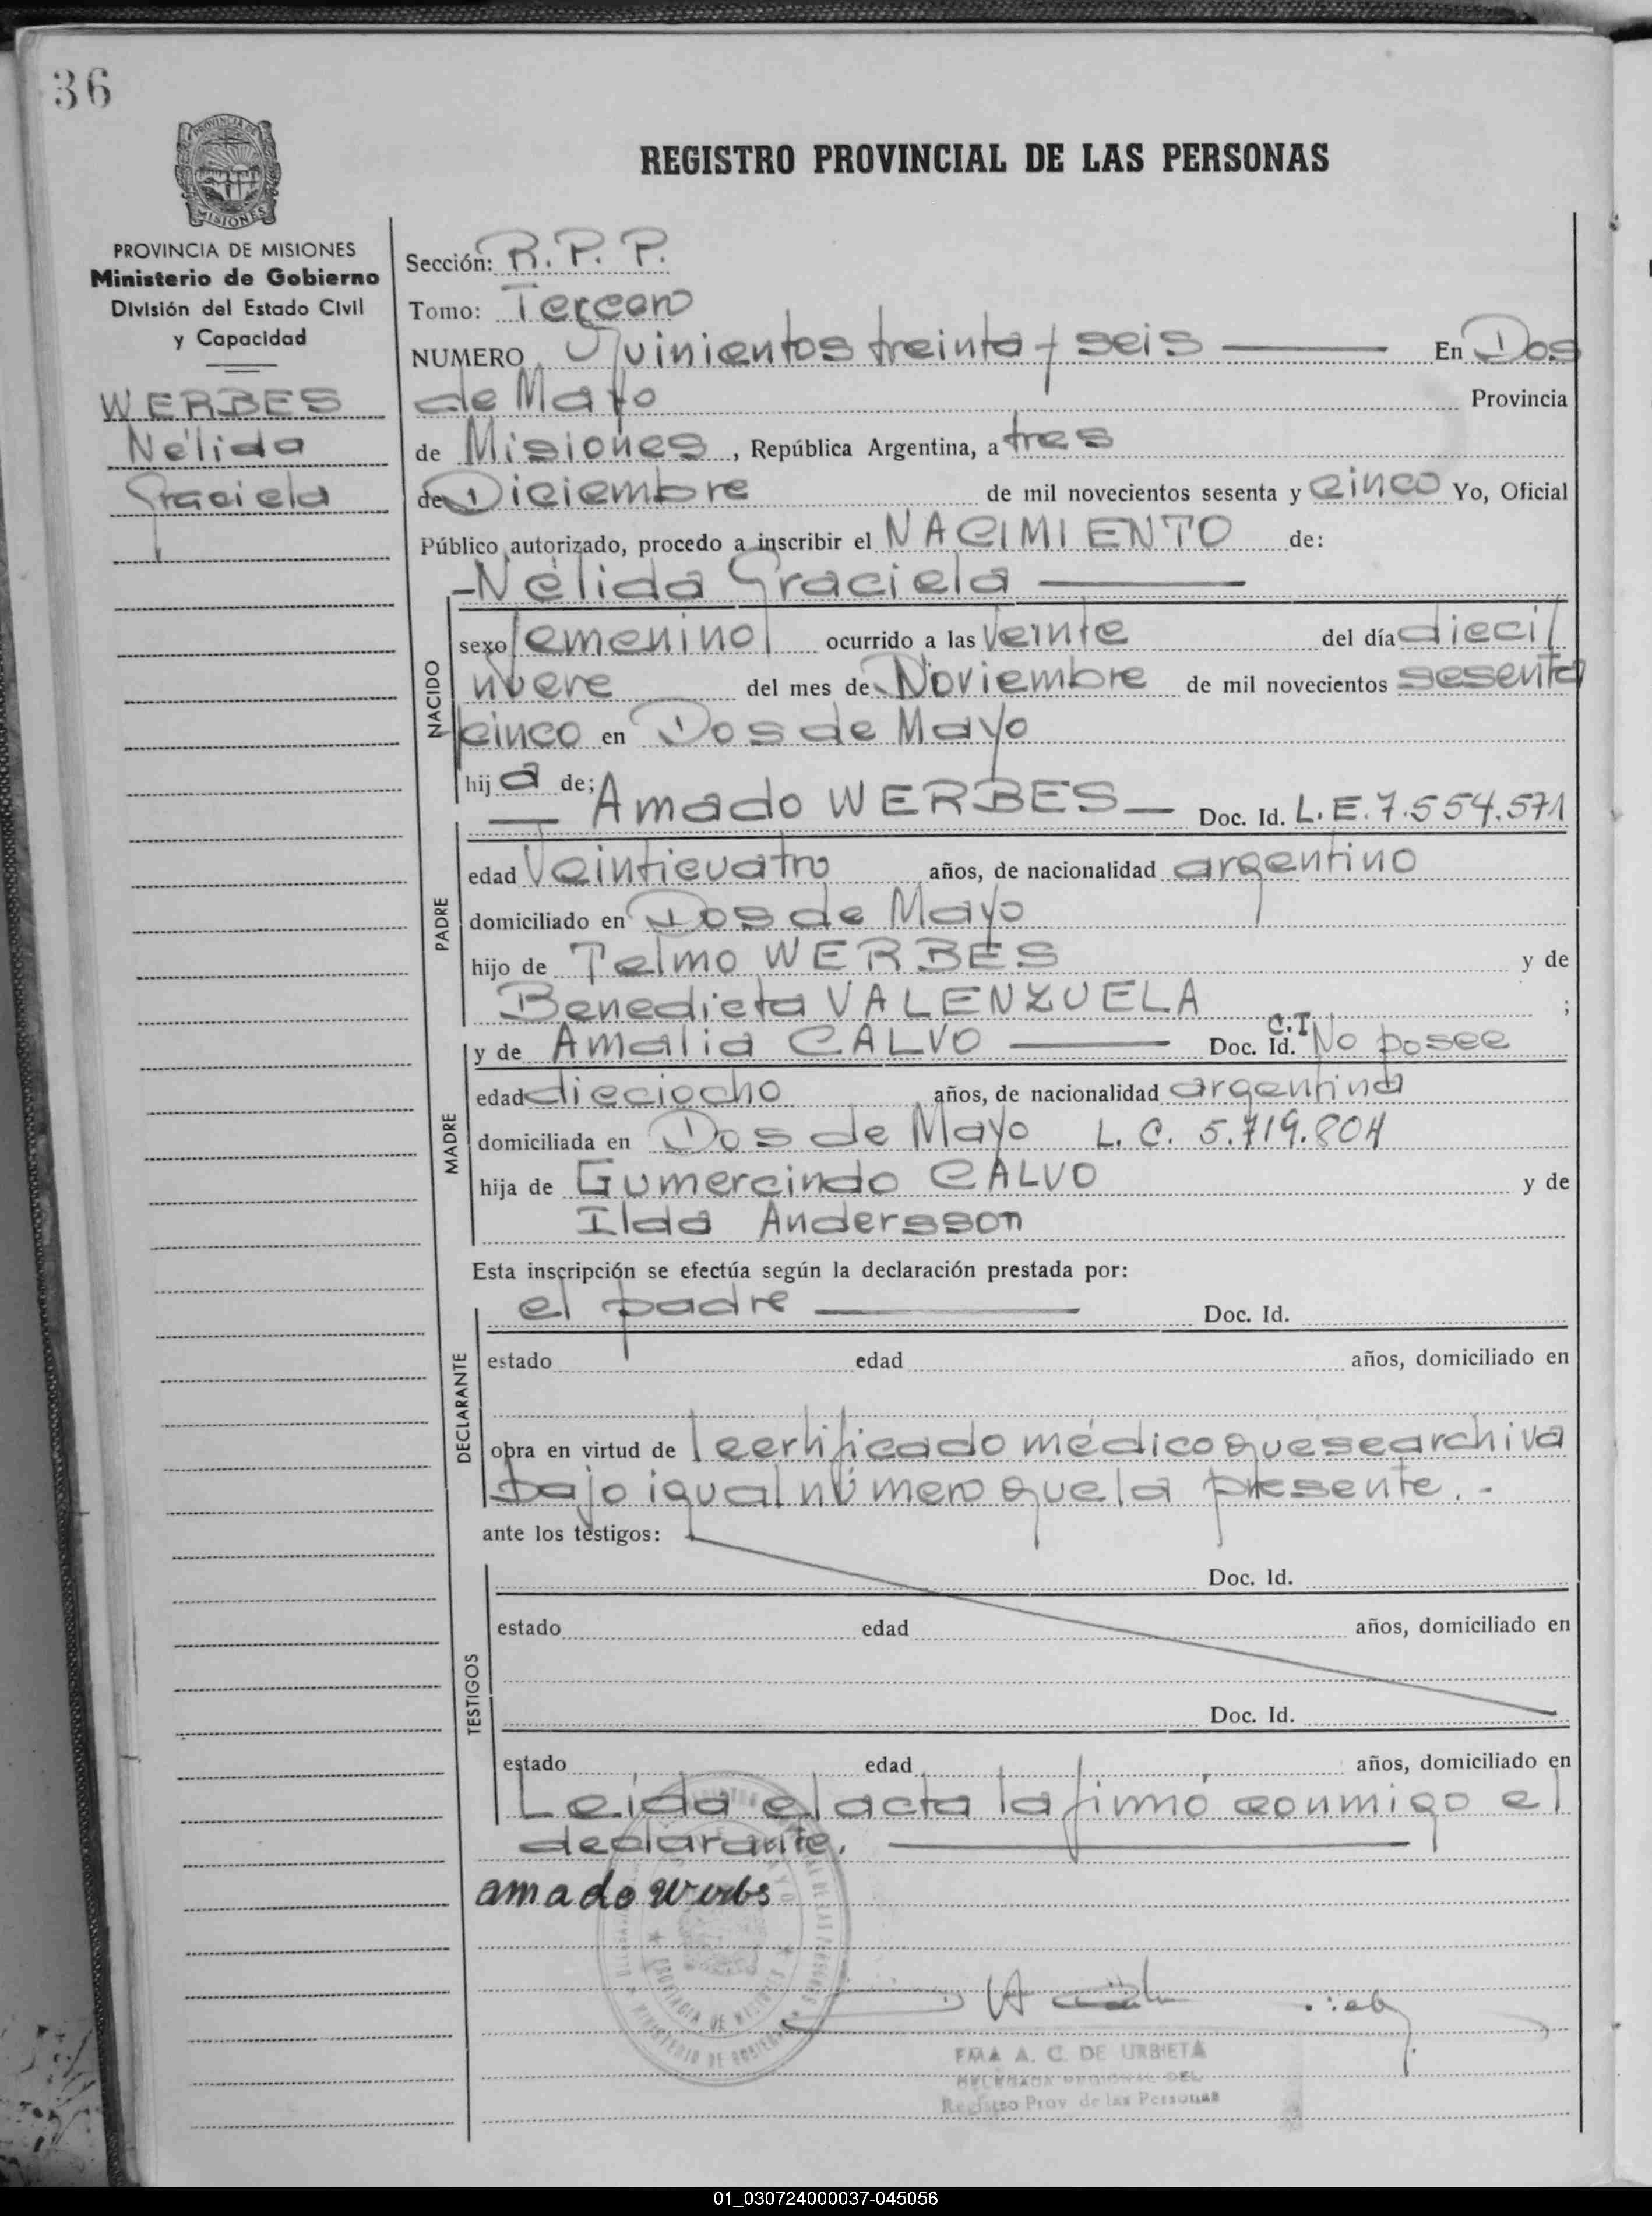 36
PROVINCIA DE MISIONES
REGISTRO PROVINCIAL DE LAS PERSONAS
PROVINCIA DE MISIONES
Ministerio de Gobierno
División del Estado Civil
y Capacidad
WERBES
Nélida
Graciela
Sección: R. P. P.
Tomo: Tercero
NUMERO Quinientos treinta y seis En Dos
de Mayo Provincia
de Misiones, República Argentina, a tres
de Diciembre de mil novecientos sesenta y cinco Yo, Oficial
Público autorizado, procedo a inscribir el NACIMIENTO de:
Nélida Graciela
NACIDO
sexo femenino ocurrido a las veinte del día dieci
nueve del mes de Noviembre de mil novecientos sesenta
cinco en Dos de Mayo
hija de; Amado WERBES Doc. Id. L. E. 7.554.571
PADRE
edad Veinticuatro años, de nacionalidad argentino
domiciliado en Dos de Mayo
hijo de Telmo WERBES y de
Benedicta VALENZUELA ;
y de Amalia CALVO Doc. Id. C.I No posee
MADRE
edad dieciocho años, de nacionalidad argentina
domiciliada en Dos de Mayo L. C. 5.719.804
hija de Gumercindo CALVO y de
Ilda Andersson
Esta inscripción se efectúa según la declaración prestada por:
el padre Doc. Id.
DECLARANTE
estado edad años, domiciliado en
obra en virtud de certificado médico que se archiva
bajo igual número que la presente. -
ante los testigos:
Doc. Id.
TESTIGOS
estado edad años, domiciliado en
Doc. Id.
estado edad años, domiciliado en
Leída el acta la firmó conmigo el
declarante.
amado werbs
PROVINCIA DE MISIONES
MINISTERIO DE GOBIERNO
A. C. DE URBIETA
DELEGADA REGIONAL DEL
Registro Prov de las Personas
01_030724000037-045056